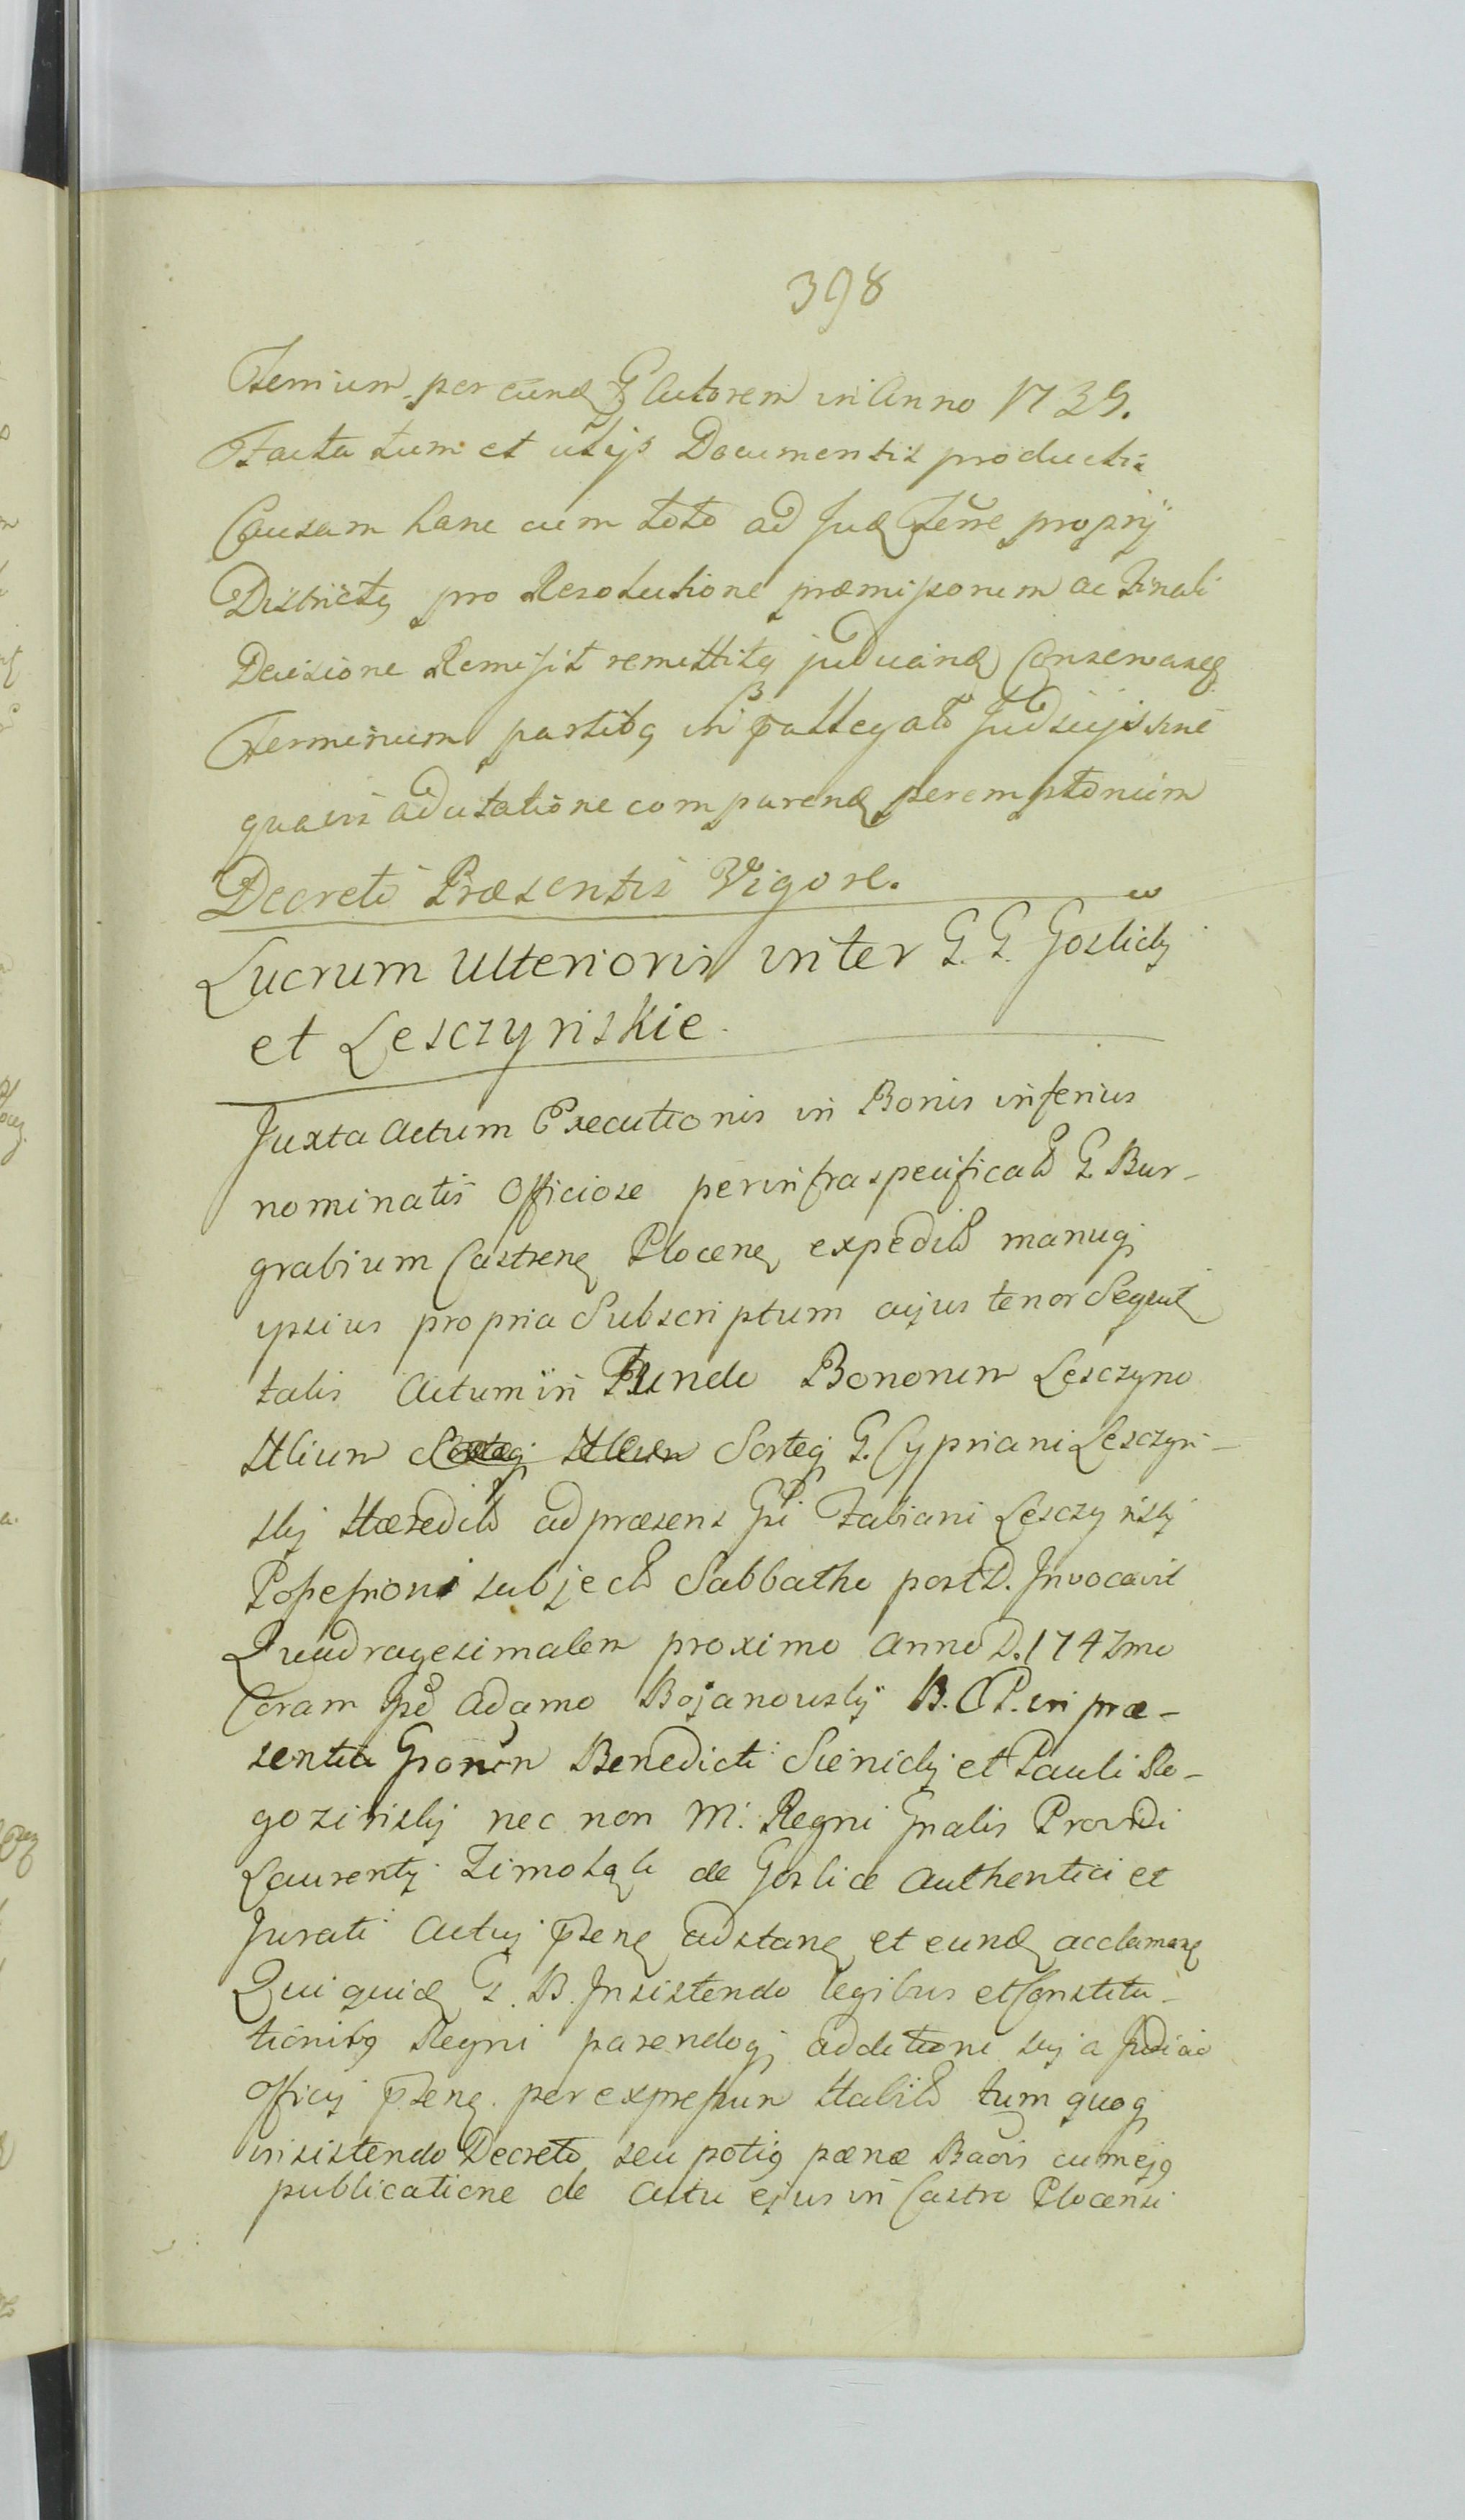 398
per eund G Autorem in Anno 1739.
Facta tum et alijs Documentis productis
Causam hanc cum toto ad Jud Terre proprij
Districtq pro Resolutione præmissorum ac Finali
Decisione Remisit remittitq judicand Conservatq
Terminum partibq in Judicijs sine
quavis adcitatione comparend peremptorium
Decreti Præsentis Vigore.
Lucrum Ulterioris inter G. G. Goslickw
et Lesczynskie
Juxta Actum Executionis in Bonis inferius
nominatis Officiose per infraspecificatu G. Bur-
grabium Castrens Plocens expeditu manuq
ipsius propria Subscriptum cujus tenor Sequit
talis Actum in Fundo Bonorum Lesczyno
Sorteq G. Cypriani Lesczyn-
skij Hæreditu ad præsens Gsi Fabiani Lesczynskij
Possessioni subjectu Sabbatho post D. Invocavit
Quadragesimalem proximo Anno D. 1747mo
Coram Gso Adamo Bojanowskij B. C P. in præ-
sentia Gronum Benedicti Sienickij et Pauli Ro-
gozinskij nec non M. Regni Gnalis Providi
Laurentij de Goslice Authentici et
Jurati Actuj psens adstans et eund acclamans
Qui quid G. B. Insistendo legibus et Constitu-
tionibq Regni parendoq additioni suj a Judicio
Officij psens per expressum tum quoq
insistendo Decreto seu potiq pænæ Banis cum ejq
publicatione de Actu ejus in Castro Plocensi